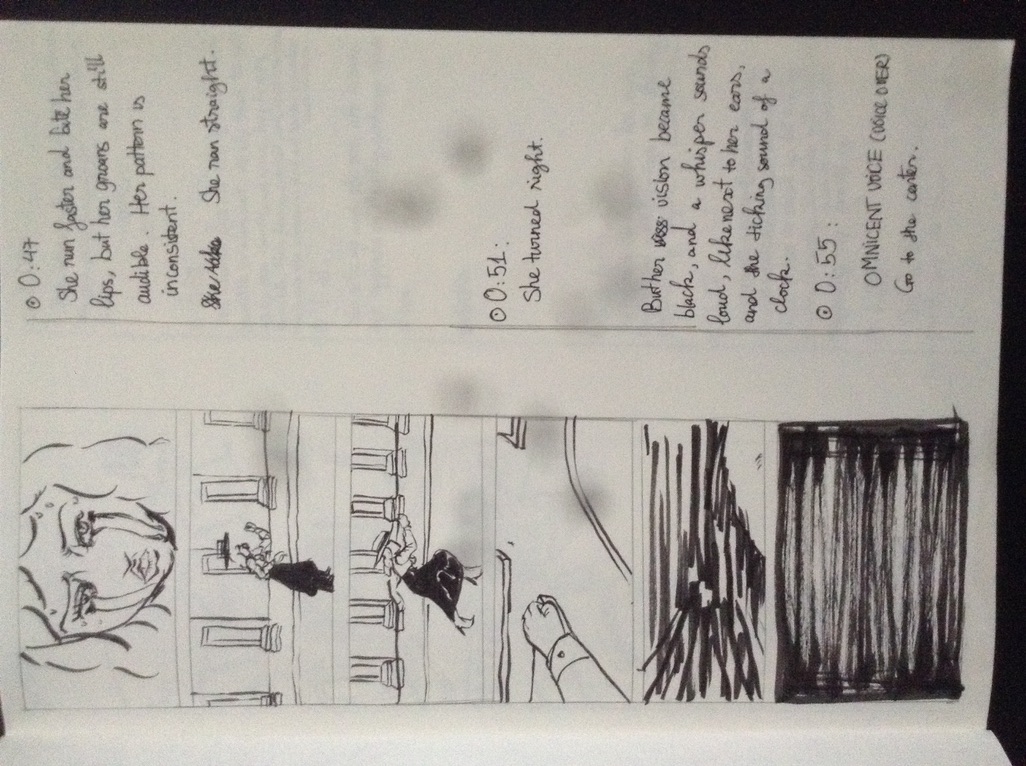 ⊙ 0:47
She run faster and bite her
lips, but her groans are still
audible. Her pattern is
inconsistent.
She ran straight.
⊙ 0:51:
She turned right.
But her vision became
black, and a whisper sounds
loud, like next to her ears,
and the ticking sound of a
clock.
⊙ 0:55:
OMNICENT VOICE (VOICE OVER)
Go to the center.